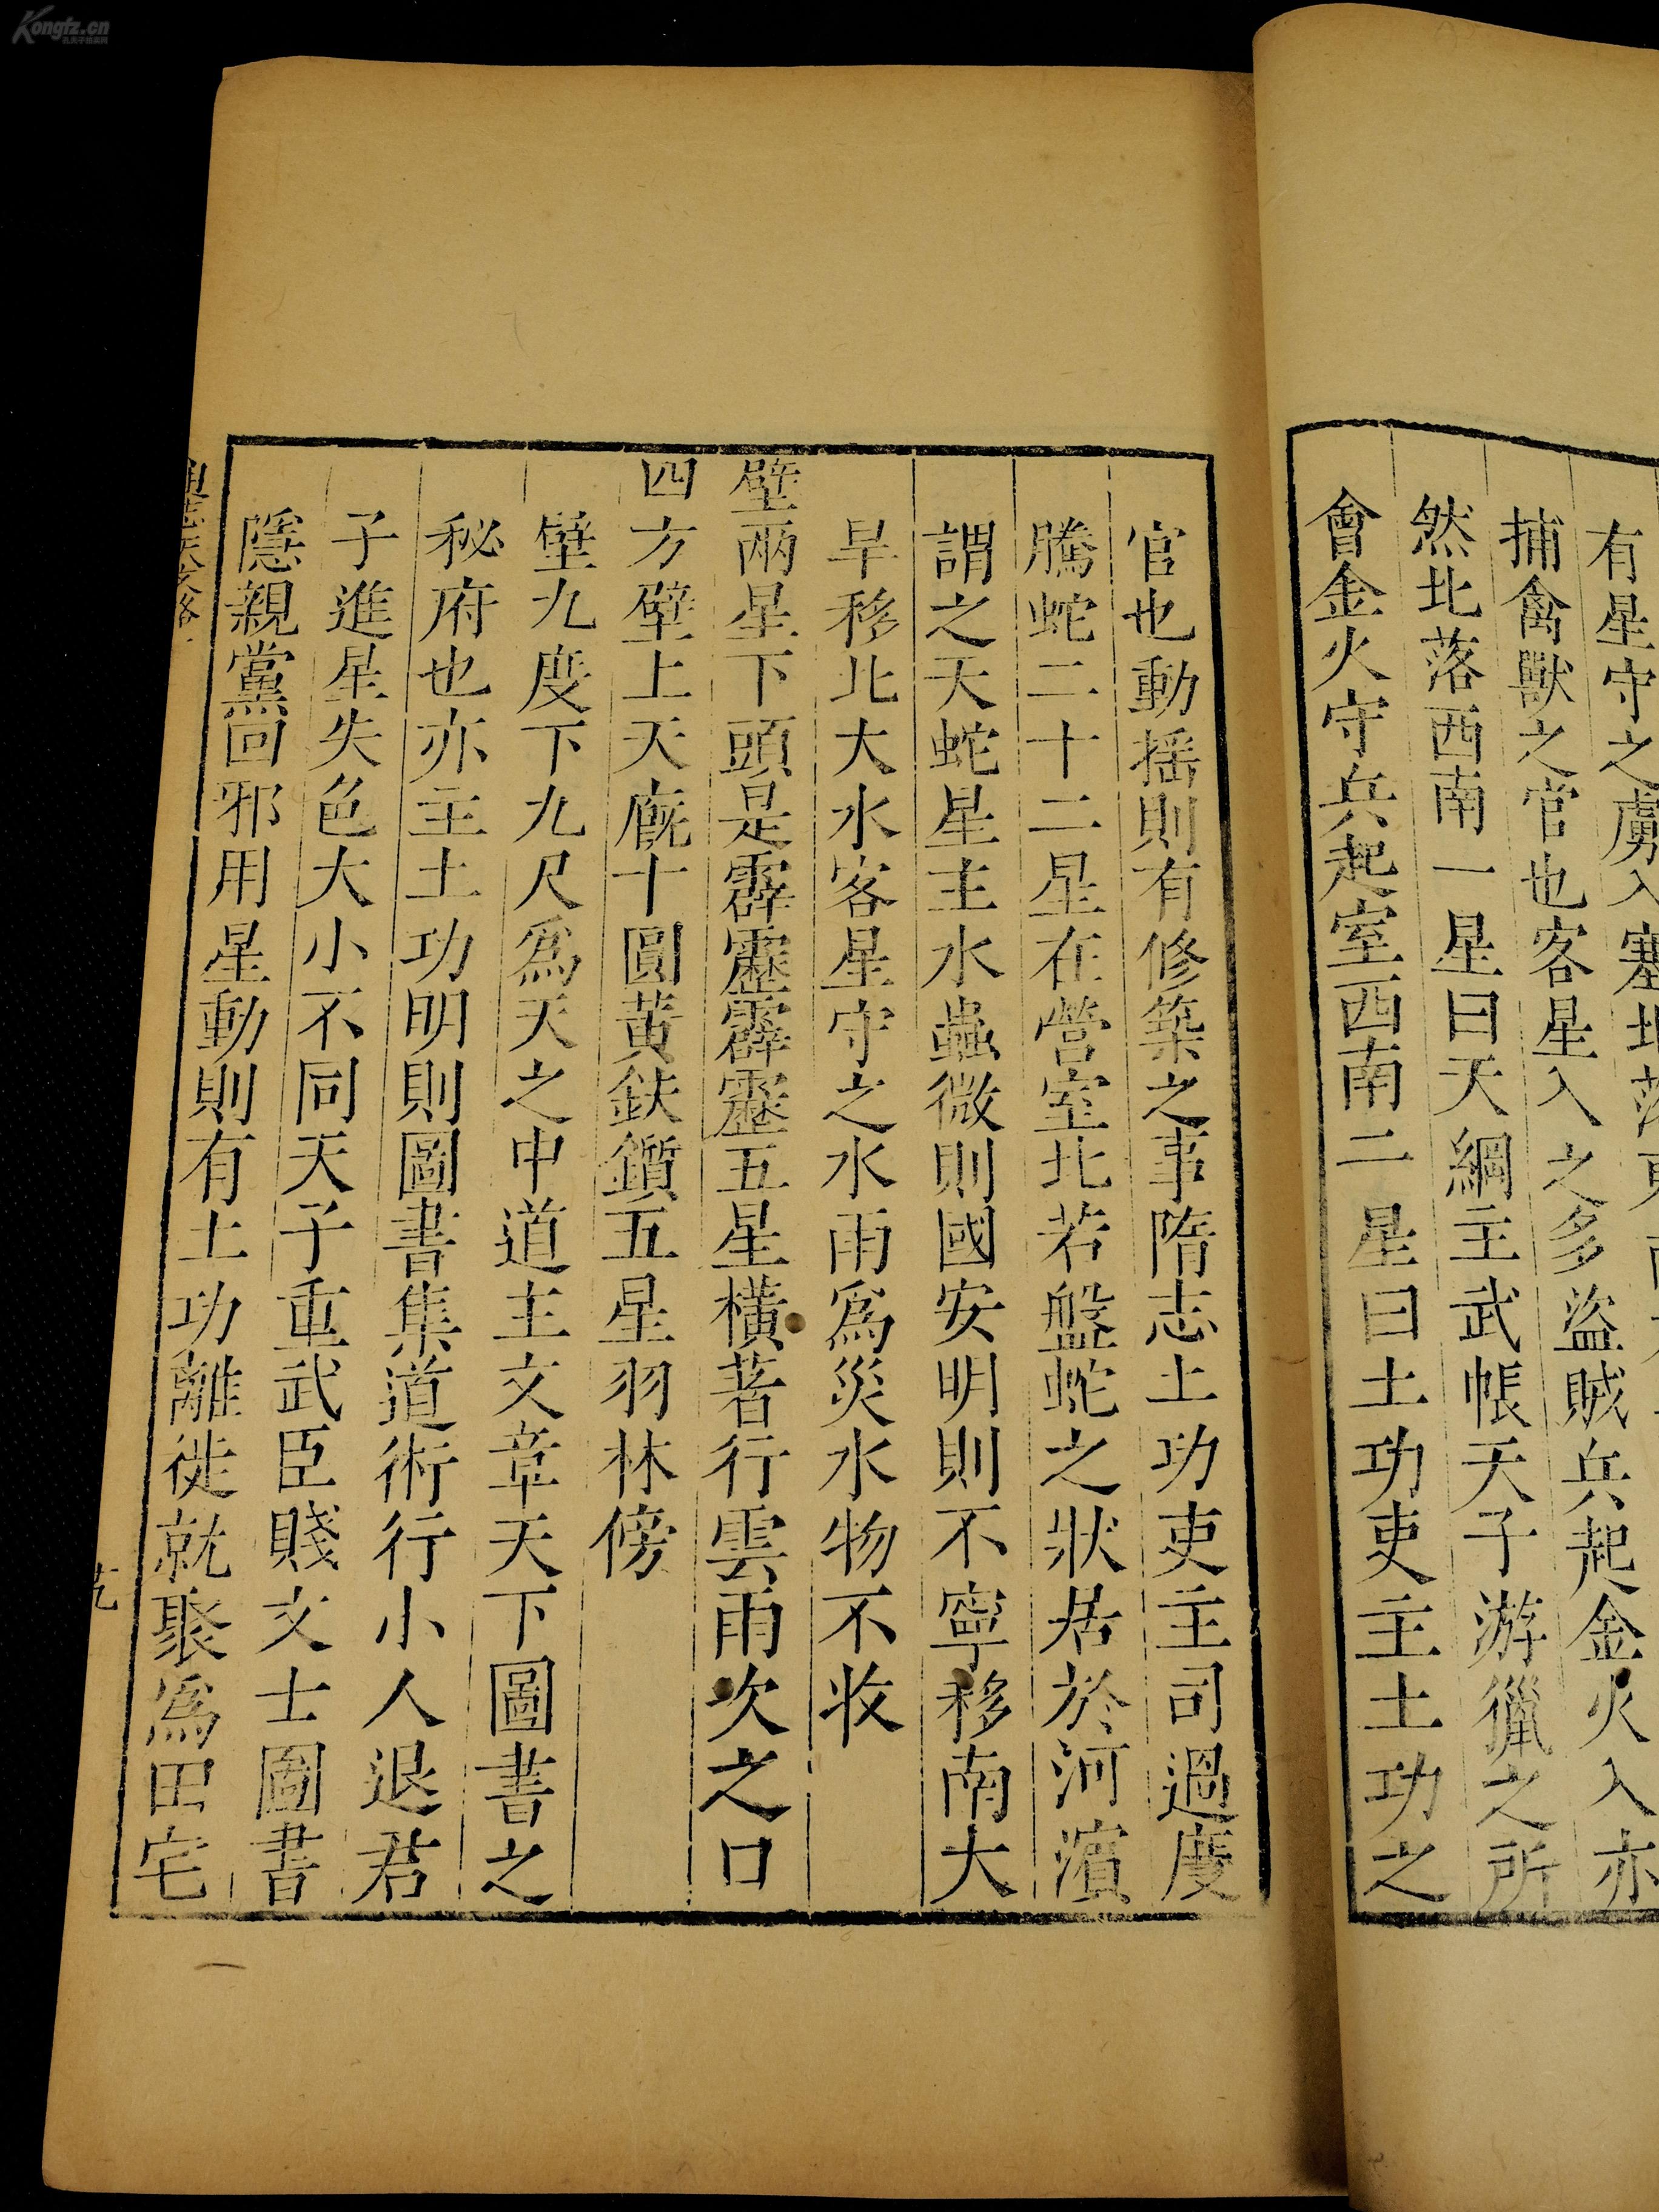 有星守之虜入塞北落
捕禽獸之官也客星入之多盜賊兵起金火入亦
然北落西南一星曰天綱主武帳天子游獵之所
會金火守兵起室西南二星曰土功吏主土功之
官也動揺則有修築之事隋志土功吏主司過度
騰蛇二十二星在營室北若盤蛇之狀居於河濱
謂之天蛇星主水蟲微則國安明則不寧移南大
旱移北大水客星守之水雨爲災水物不收
壁兩星下頭是霹靂霹靂五星橫著行雲雨次之口
四方壁上天廐十圓黃鈇鑕五星羽林傍
壁九度下九尺爲天之中道主文章天下圖書之
秘府也亦主土功明則圖書集道術行小人退君
子進星失色大小不同天子重武臣賤文士圖書
隱親黨回邪用星動則有土功離徙就聚爲田宅
Kongfz.cn